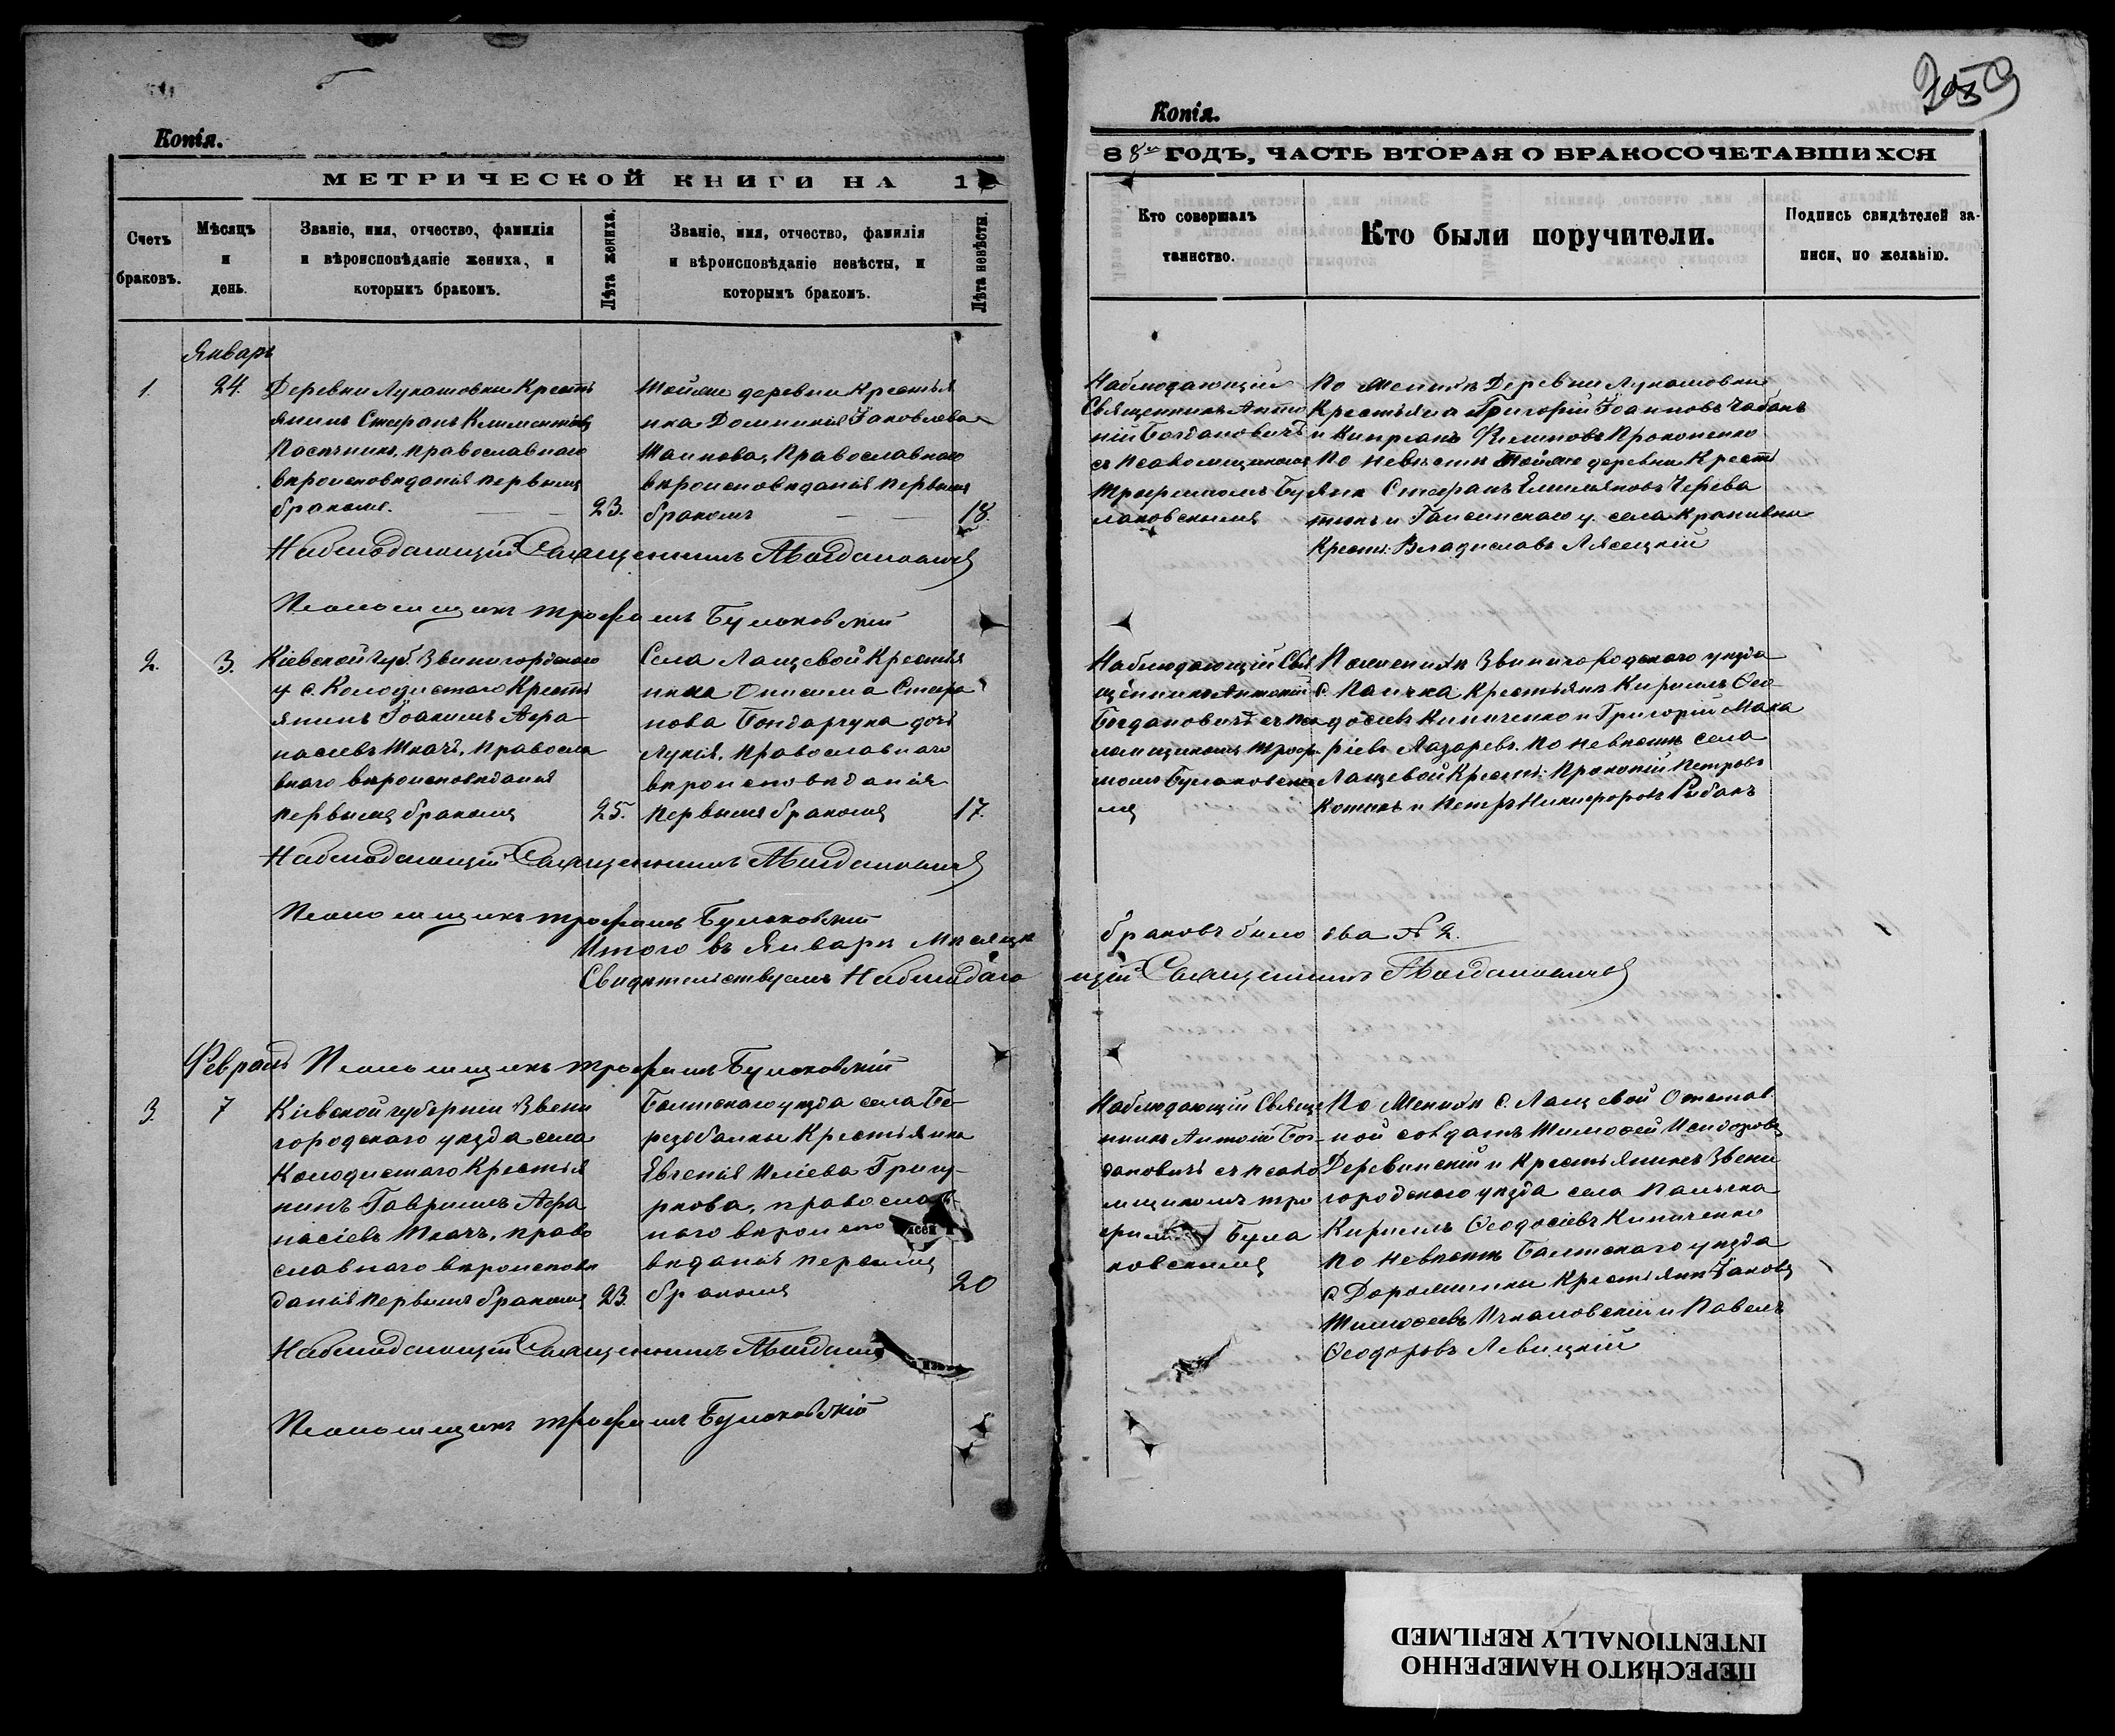 Копія.
МЕТРИЧЕСКОЙ КНИГИ НА 1
Счетъ браковъ.
Мѣсяцъ и день.
Званіе, имя, отчество, фамилія
и вѣроисповѣданіе жениха, и
которымъ бракомъ.
Лѣта жениха.
Званіе, имя, отчество, фамилія
и вѣроисповѣданіе невѣсты, и
которымъ бракомъ.
Лѣта невѣсты.
Январь
1. 24.
Деревни Лукашовки Кресть
янинъ Стефанъ Климентіевъ
православнаго
вѣроисповѣданія первымъ
бракомъ. 23.
Тойже деревни Крестья
нка Домникія Іаковлева
Православнаго
вѣроисповѣданія первымъ
бракомъ 18.
Наблюдающій Священникъ А Богдановичъ
Псаломщикъ Трофимъ Булаковскій
2. 3.
Кіевской губ. Звиногородскаго
у. с. Колодистаго Кресть
янинъ Іоакимъ Афа
насіевъ Ткачъ, Правосла
внаго вѣроисповѣданія
первымъ бракомъ 25.
Села Лащевой Крестья
нина Онисима Стефа
нова Бондарчука дочь
Лукія, Православнаго
вѣроисповѣданія
первымъ бракомъ 17.
Наблюдающій Священникъ А Богдановичъ
Псаломщикъ Трофимъ Булаковскій
Итого въ Январѣ мѣсяцѣ
Свидѣтельствуемъ Наблюдаю
Февраль Псаломщикъ Трофимъ Булаковскій
3. 7
Кіевской губерніи Звени
городскаго уѣзда села
Колодистаго Крестья
нинъ Гавріилъ Афа
насіевъ Ткачъ, право
славнаго вѣроисповѣ
данія первымъ бракомъ 23.
Балтскаго уѣзда села Бе-
резобалки Крестьянка
Евгенія Иліева Григу-
ркова, православ
наго вѣроиспо
вѣданія первымъ
бракомъ 20
Наблюдающій Священникъ А Богданов
Псаломщикъ Трофимъ Булаковскій
Копія.
88й ГОДЪ, ЧАСТЬ ВТОРАЯ О БРАКОСОЧЕТАВШИХСЯ
Кто совершалъ
таинство.
Кто были поручители.
Подпись свидѣтелей за-
писи, по желанію.
Наблюдающій
Священникъ Анто
ній Богдановичъ
съ Псаломщикомъ
Трофимомъ Бу
лаковскимъ
По женихѣ Деревни Лукашовки
Крестьяне Григорій Іоанновъ Чабанъ
и Кипріанъ Филиповъ Прокопенко
По невѣстѣ Тойже деревни Кресть
янинъ Стефанъ Емиліановъ Черева
тюкъ и Гайсинскаго у. села Крапивни
Крест. Владиславъ Лясецкій
Наблюдающій Свя
щенникъ Антоній
Богдановичъ съ Пса
ломщикомъ Трофи
момъ Булаковски
мъ
По женихѣ Звиногородскаго уѣзда
с. Пальчка Крестьяне Кирилъ Ѳео
досіевъ Кипиченко и Григорій Мака
ріевъ Лазаревъ. По невѣстѣ села
Лащевой Крест. Прокопій Петровъ
Котикъ и Петръ Никифоровъ Рибакъ
браковъ било два № 2.
щій Священникъ А Богдановичъ
Наблюдающій Свяще
нникъ Антоній Бог-
дановичъ съ псало
мщикомъ Тро
фимомъ Була
ковскимъ
По Женихѣ с. Лащевой Отстав
ной солдатъ Тимофей Исидоровъ
Деревинскій и Крестьянинъ Звени
городскаго уѣзда села Пальчка
Кирилъ Ѳеодосіевъ Кипиченко
По невѣстѣ Балтскаго уѣзда
Крестьяне Іаковъ
Тимофеевъ Ичкаловскій и Павелъ
Ѳеодоровъ Левицкій
ПЕРЕСНЯТО НАМЕРЕННО
INTENTIONALLY REFILMED